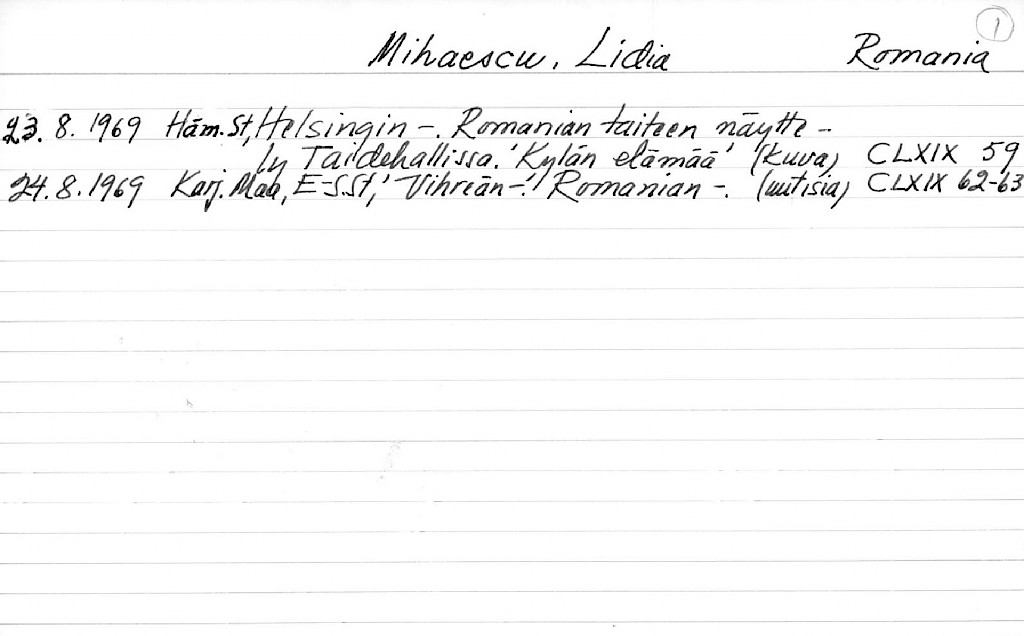 1
Mihaescu, Lidia Romania
23. 8. 1969 Häm. St, Helsingin -. Romanian taiteen näytte-
ly Taidehallissa. 'Kylän elämää' (kuva) CLXIX 59
24. 8. 1969 Karj. Maa, E-S.St, 'Vihreän -.' Romanian -. (uutisia) CLXIX 62-63